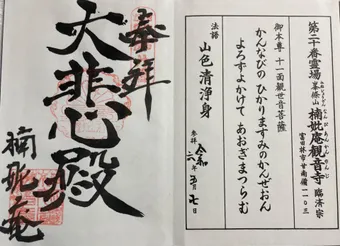 奉拝
大悲殿
楠妣庵
第二十番霊場
峯條山 楠妣庵観音寺 臨済宗
富田林市甘南備一一〇三
御本尊 十一面観世音菩薩
かんなびの ひかりますみのかんぜおん
よろずよかけて あおぎまつらむ
法語
山色清浄身
参拝 令和六年五月七日